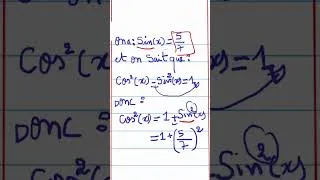 ona: Sin(x) = 5/7
et on Sait que:
Cos²(x) - Sin²(x) = 1
DONC :
Cos²(x) = 1 + Sin²(x)
= 1 + (5/7)²
Cos²(x)
= 1
DONC
Sin²(x)